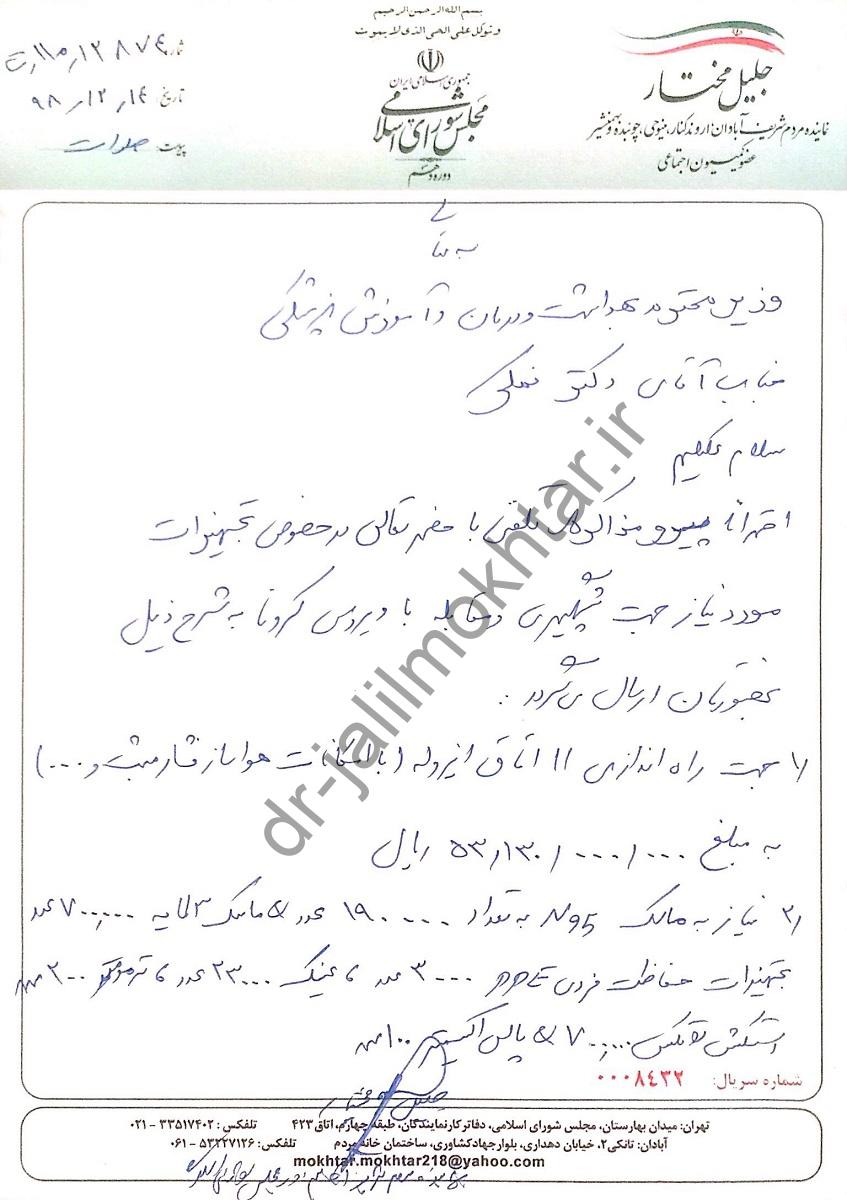 بسم الله الرحمن الرحیم
وتوکل علی الحی الذی لایموت
جمهوری اسلامی ایران
مجلس شورای اسلامی
دوره دهم
جلیل مختار
نماینده مردم شریف آبادان، اروندکنار، مینوحی، چوئبده و بهمنشیر
عضو کمیسیون اجتماعی
شماره: ۱۲۸۷۴
تاریخ: ۹۸/۱۲/۱۴
پیوست:
وزیر محترم بهداشت و درمان و آموزش پزشکی
جناب آقای دکتر نمکی
سلام علیکم
احتراما پیرو مذاکرات تلفنی با حضرتعالی در خصوص تجهیزات
مورد نیاز جهت پیشگیری و مقابله با ویروس کرونا به شرح ذیل
بحضورتان ارسال می‌گردد:
۱/ جهت راه اندازی ۱۱ اتاق ایزوله (با امکانات هواساز فشار مثبت و ...)
به مبلغ ۵۳/۱۳۰/۰۰۰/۰۰۰ ریال
۲/ نیاز به ماسک N95 به تعداد ۱۹۰۰۰۰ عدد و ماسک ۳ لایه ۷۰۰۰۰۰ عدد
تجهیزات حفاظت فردی PPE ۳۰۰۰ عدد، عینک ۲۳۰۰۰ عدد، ترمومتر ۲۰۰ عدد
دستکش لاتکس ۷۰۰۰۰۰ و پالس اکسیمتر ۱۰۰ عدد
شماره سریال: ۰۰۰۸۴۳۲
جلیل مختار
تهران: میدان بهارستان، مجلس شورای اسلامی، دفاتر کار نمایندگان، طبقه چهارم، اتاق ۴۲۳ تلفکس: ۳۳۵۱۷۴۰۲ - ۰۲۱
آبادان: تانکی۲، خیابان دهداری، بلوار جهاد کشاورزی، ساختمان خانه مردم تلفکس: ۵۳۲۲۷۱۲۶ - ۰۶۱
mokhtar.mokhtar218@yahoo.com
dr-jalilmokhtar.ir